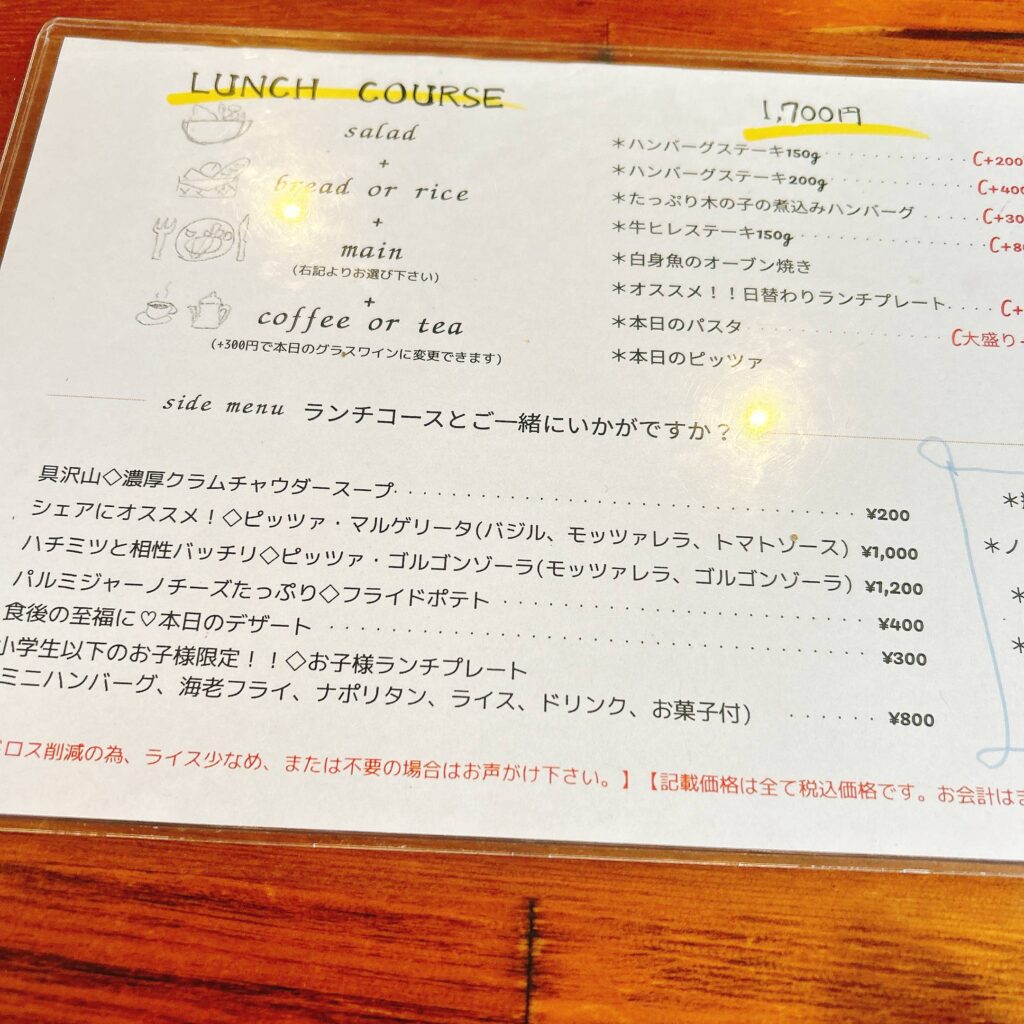 LUNCH COURSE
1,700円
salad
+
bread or rice
+
main
(右記よりお選び下さい)
+
coffee or tea
(+300円で本日のグラスワインに変更できます)
*ハンバーグステーキ150g C+200
*ハンバーグステーキ200g C+400
*たっぷり木の子の煮込みハンバーグ C+30
*牛ヒレステーキ150g C+8
*白身魚のオーブン焼き
*オススメ！！日替わりランチプレート C+
*本日のパスタ C大盛り
*本日のピッツァ
side menu ランチコースとご一緒にいかがですか？
具沢山◇濃厚クラムチャウダースープ ¥200
シェアにオススメ！◇ピッツァ・マルゲリータ(バジル、モッツァレラ、トマトソース) ¥1,000
ハチミツと相性バッチリ◇ピッツァ・ゴルゴンゾーラ(モッツァレラ、ゴルゴンゾーラ) ¥1,200
パルミジャーノチーズたっぷり◇フライドポテト ¥400
食後の至福に♡本日のデザート ¥300
小学生以下のお子様限定！！◇お子様ランチプレート
ミニハンバーグ、海老フライ、ナポリタン、ライス、ドリンク、お菓子付) ¥800
ロス削減の為、ライス少なめ、または不要の場合はお声がけ下さい。】【記載価格は全て税込価格です。お会計は